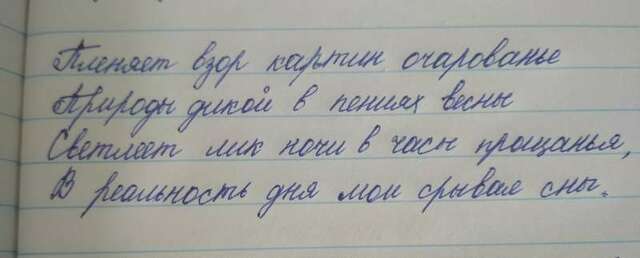 Пленяет взор картин очарованье
Природы дикой в пениях весны
Светлеет лик ночи в часы прощанья,
В реальность дня мои срывая сны.